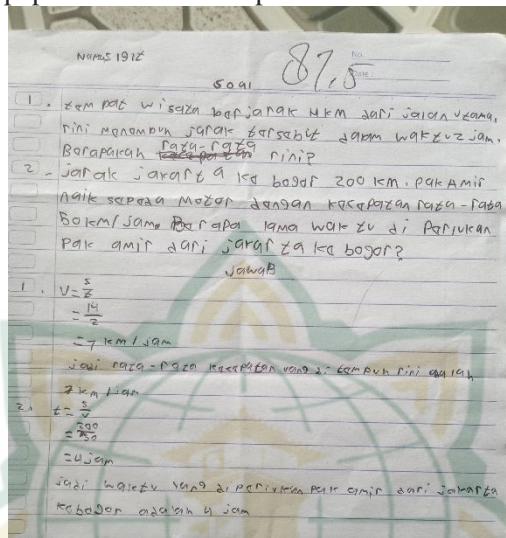 87,5
No.
Date:
Soal
1. tempat wisata berjarak 14 KM dari jalan utama,
rini menempuh jarak tersebut dalam waktu 2 jam.
Berapakah rata-rata rini?
2. jarak jakarta ke bogor 200 km. pak Amir
naik sepeda motor dengan kecepatan rata-rata
50 km/jam. Berapa lama waktu di perlukan
pak amir dari jakarta ke bogor?
jawab
1. V = s/t
= 14/2
= 7 km/jam
jadi rata-rata kecepatan yang di tempuh rini adalah
7 km/jam
2. t = s/v
= 200/50
= 4 jam
jadi waktu yang di perlukan pak amir dari jakarta
ke bogor adalah 4 jam